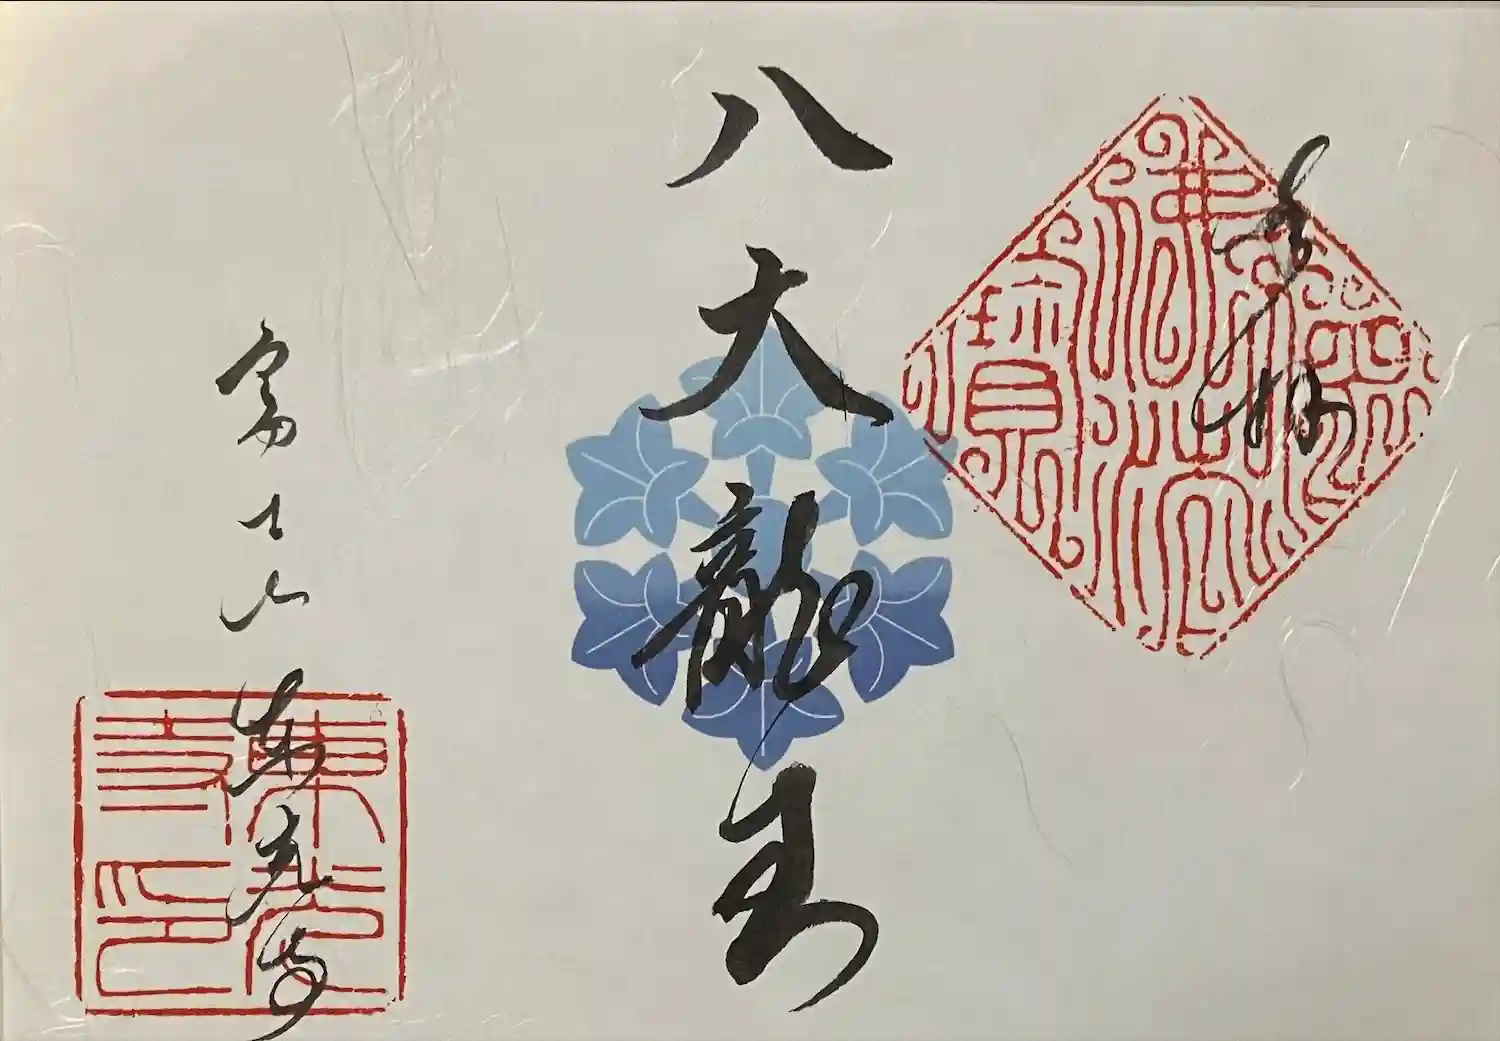 奉拝
佛法僧寶
八大龍王
富士山 東光寺
東光寺印